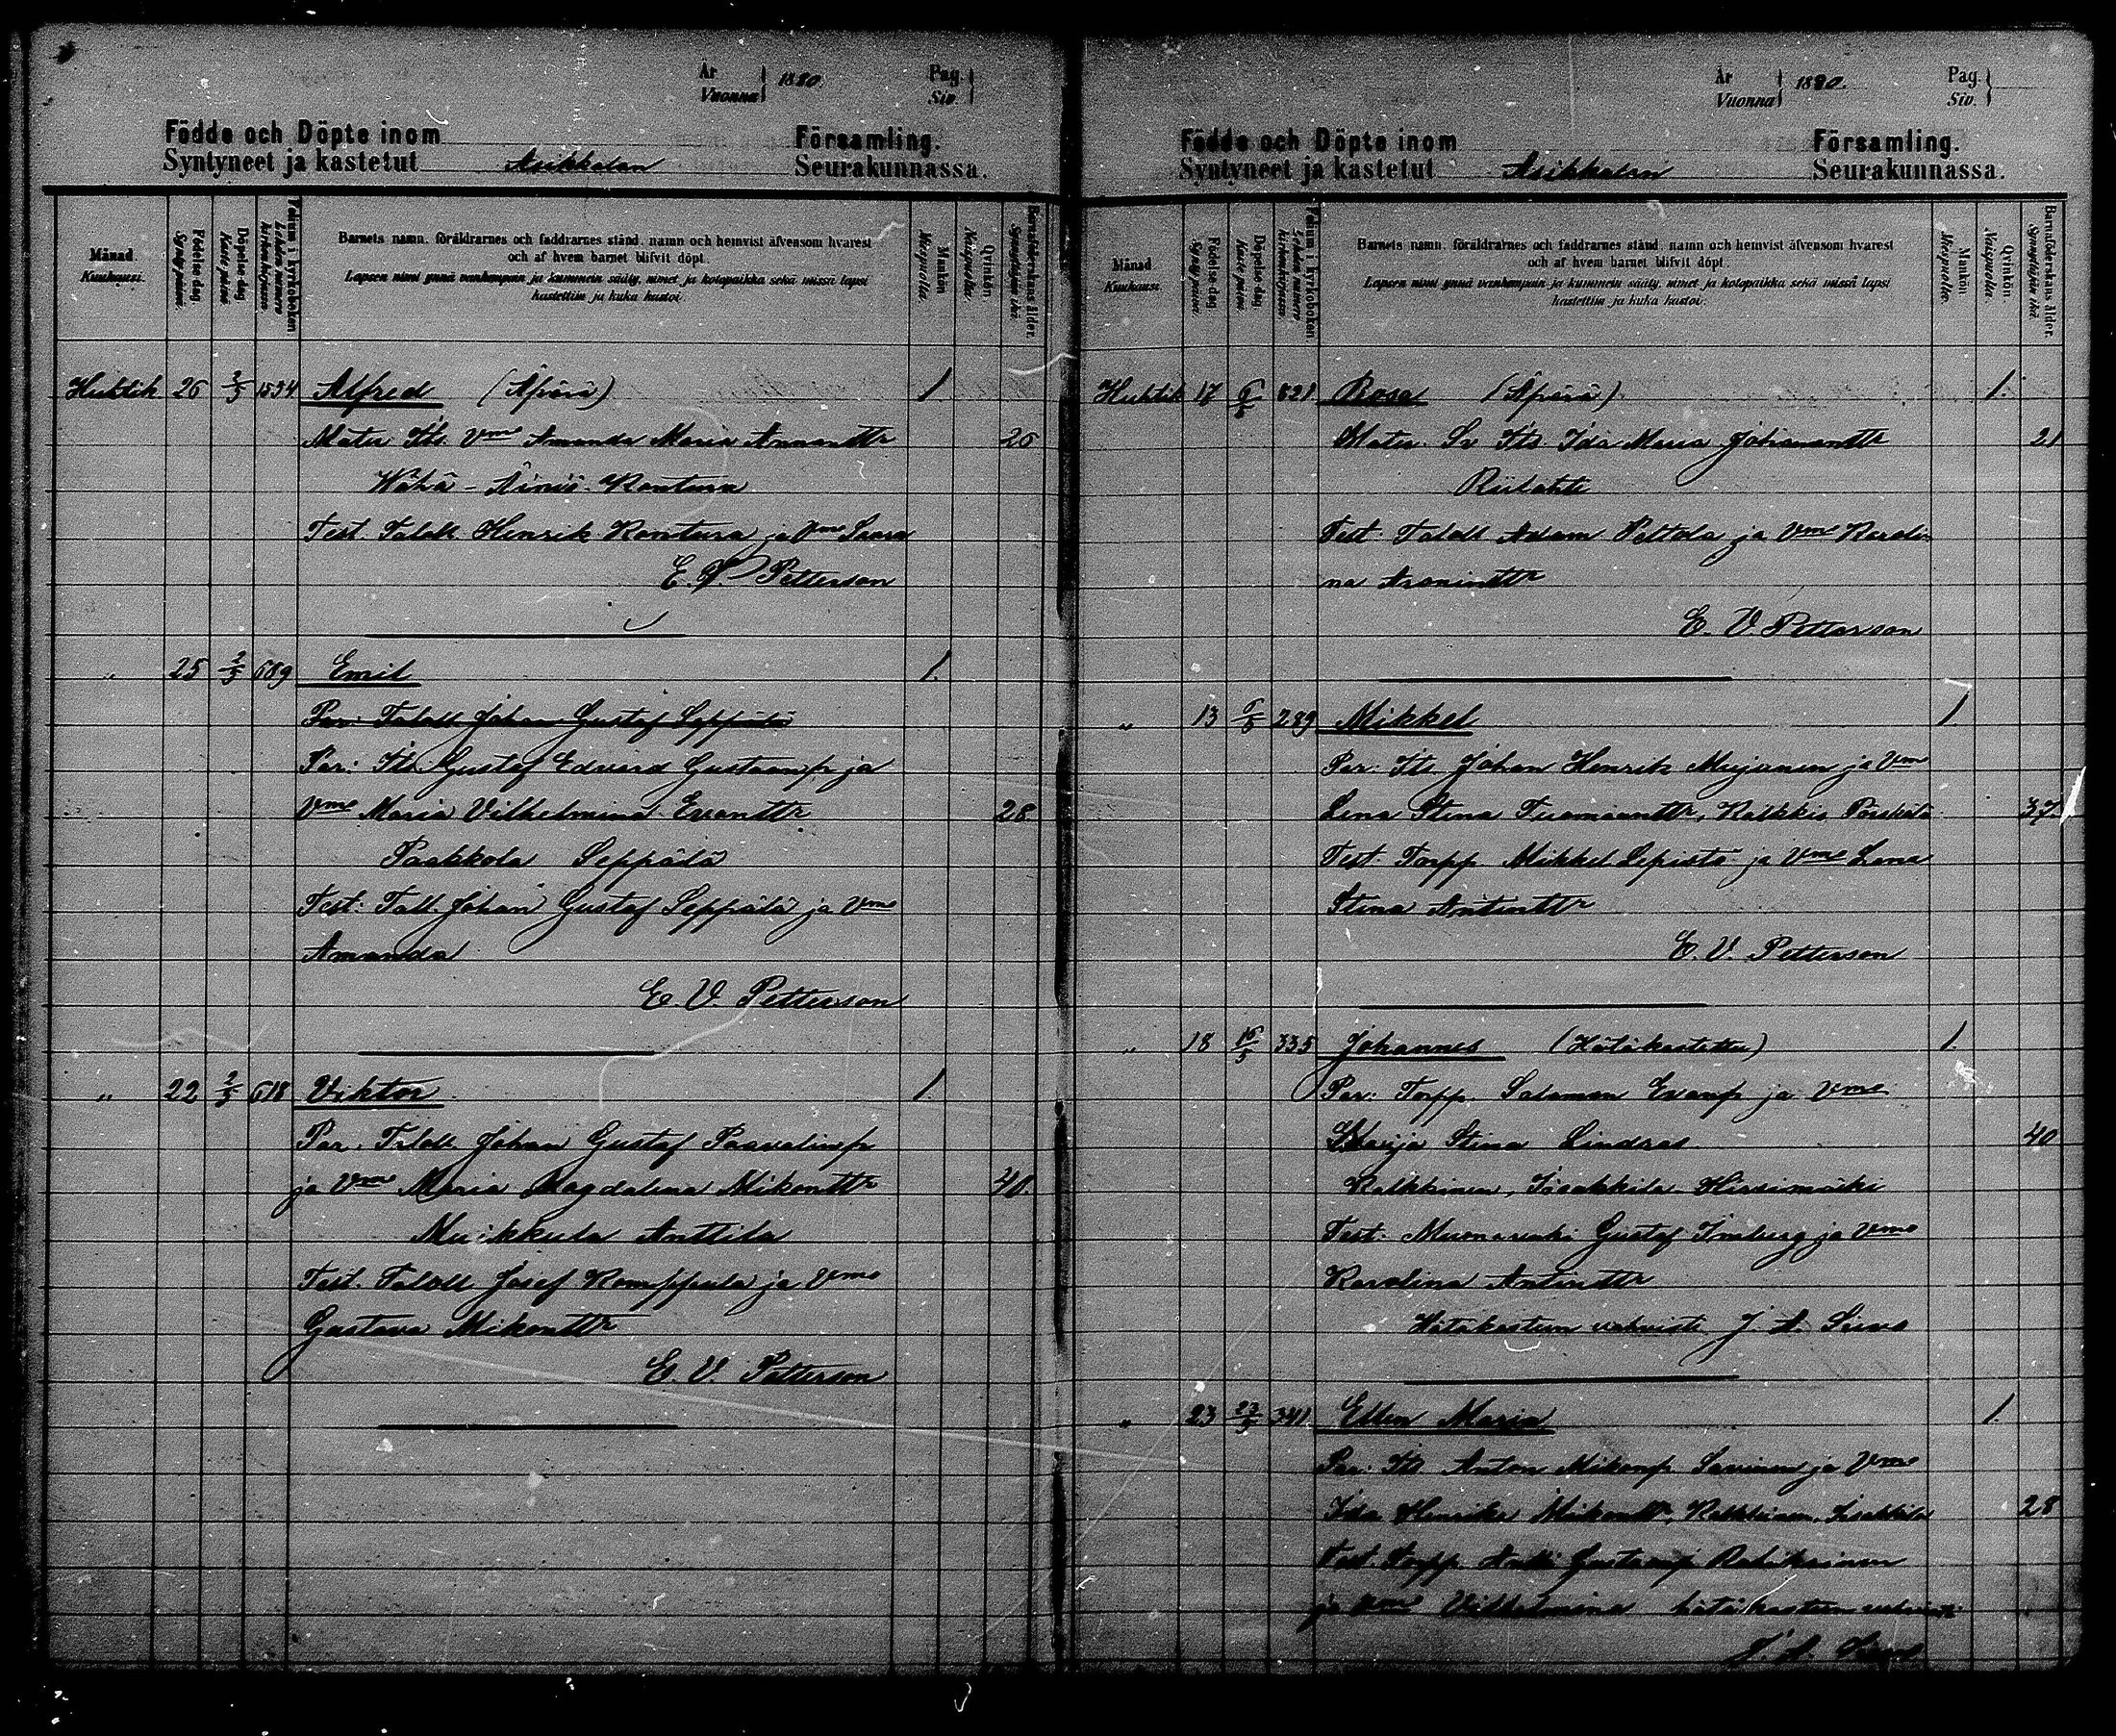 År
Vuonna 1880.
Pag.
Siv.
Födde och Döpte inom
Syntyneet ja kastetut Asikkalan
Församling.
Seurakunnassa.
Månad.
Kuukausi.
Födelse-dag.
Synty-päivä.
Döpelse-dag.
Kaste-päivä.
Folium i kyrkoboken
Lehden numero kirkonkirjassa.
Barnets namn, föräldrarnes och faddrarnes stånd, namn och hemvist äfvensom hvarest
och af hvem barnet blifvit döpt.
Lapsen nimi ynnä vanhempain ja kummein sääty, nimet ja kotopaikka sekä missä lapsi
kastettiin ja kuka kastoi.
Mankön
Miespuolta.
Qvinkön
Naispuolta.
Barnaföderskans ålder.
Synnyttäjän ikä.
Huhtik 26 2/5 1534 Alfred (Äpärä) 1
Mater Its Vmo Amanda Maria Annanttr 26
Wähä-Äiniö-Kontura
Test. Taloll Henrik Kontura ja Vmo Saara
E. V. Petterson
" 25 2/5 689 Emil 1.
Par: Taloll Johan Gustaf Seppälä
Par: Its Gustaf Edvard Gustaanp. ja
Vmo Maria Vilhelmina Evanttr 28
Paakkola Seppälä
Test: Tall. Johan Gustaf Seppälä ja Vmo
Amanda
E. V. Petterson
" 22 2/5 618 Viktor 1.
Par. Taloll. Johan Gustaf Paavalinp
ja Vmo Maria Magdalena Mikonttr 40.
Muikkula Anttila
Test. Taloll Josef Komppula ja Vmo
Gustava Mikonttr
E. V. Petterson
År
Vuonna 1880.
Pag.
Siv.
Födde och Döpte inom
Syntyneet ja kastetut Asikkalan
Församling.
Seurakunnassa.
Månad.
Kuukausi.
Födelse-dag.
Synty-päivä.
Döpelse-dag.
Kaste-päivä.
Folium i kyrkoboken
Lehden numero kirkonkirjassa.
Barnets namn, föräldrarnes och faddrarnes stånd, namn och hemvist äfvensom hvarest
och af hvem barnet blifvit döpt.
Lapsen nimi ynnä vanhempain ja kummein sääty, nimet ja kotopaikka sekä missä lapsi
kastettiin ja kuka kastoi.
Mankön
Miespuolta.
Qvinkön
Naispuolta.
Barnaföderskans ålder.
Synnyttäjän ikä.
Huhtik 17 6/5 821 Rosa (Äpärä) 1.
Mater. Its Ida Maria Johananttr 21
Riilahti
Test: Taloll Adam Peltola ja Vmo Karoli-
na Aroninttr
E. V. Petterson
" 13 6/5 289 Mikkel 1
Par: Its Johan Henrik Mujanen ja Vmo
Lena Stina Tuomaanttr, Kalkkis 37.
Test: Torpp. Mikkel Lepistö ja Vmo Lena
Stina Antinttr
E. V. Petterson
" 18 16/5 335 Johannes (Hätäkastettu) 1.
Par: Torpp. Salomon Evanp ja Vmo
Maija Stina Lindras 40
Kalkkinen, Iisakkila-Hirsimäki
Test: Muonarenki Gustaf Imberg ja Vmo
Karolina Antinttr
Hätäkasteen vahvisti J. A.
" 23 23/5 341 Ellen Maria 1.
Par: Its Anton Mikonp Savinen ja Vmo
Ida Henrika Mikonttr, Kalkkinen, Iisakkila 28
Test. Torpp. Antti Gustaanp
ja Vmo Vilhelmina hätäkasteen vahvisti
J. A.